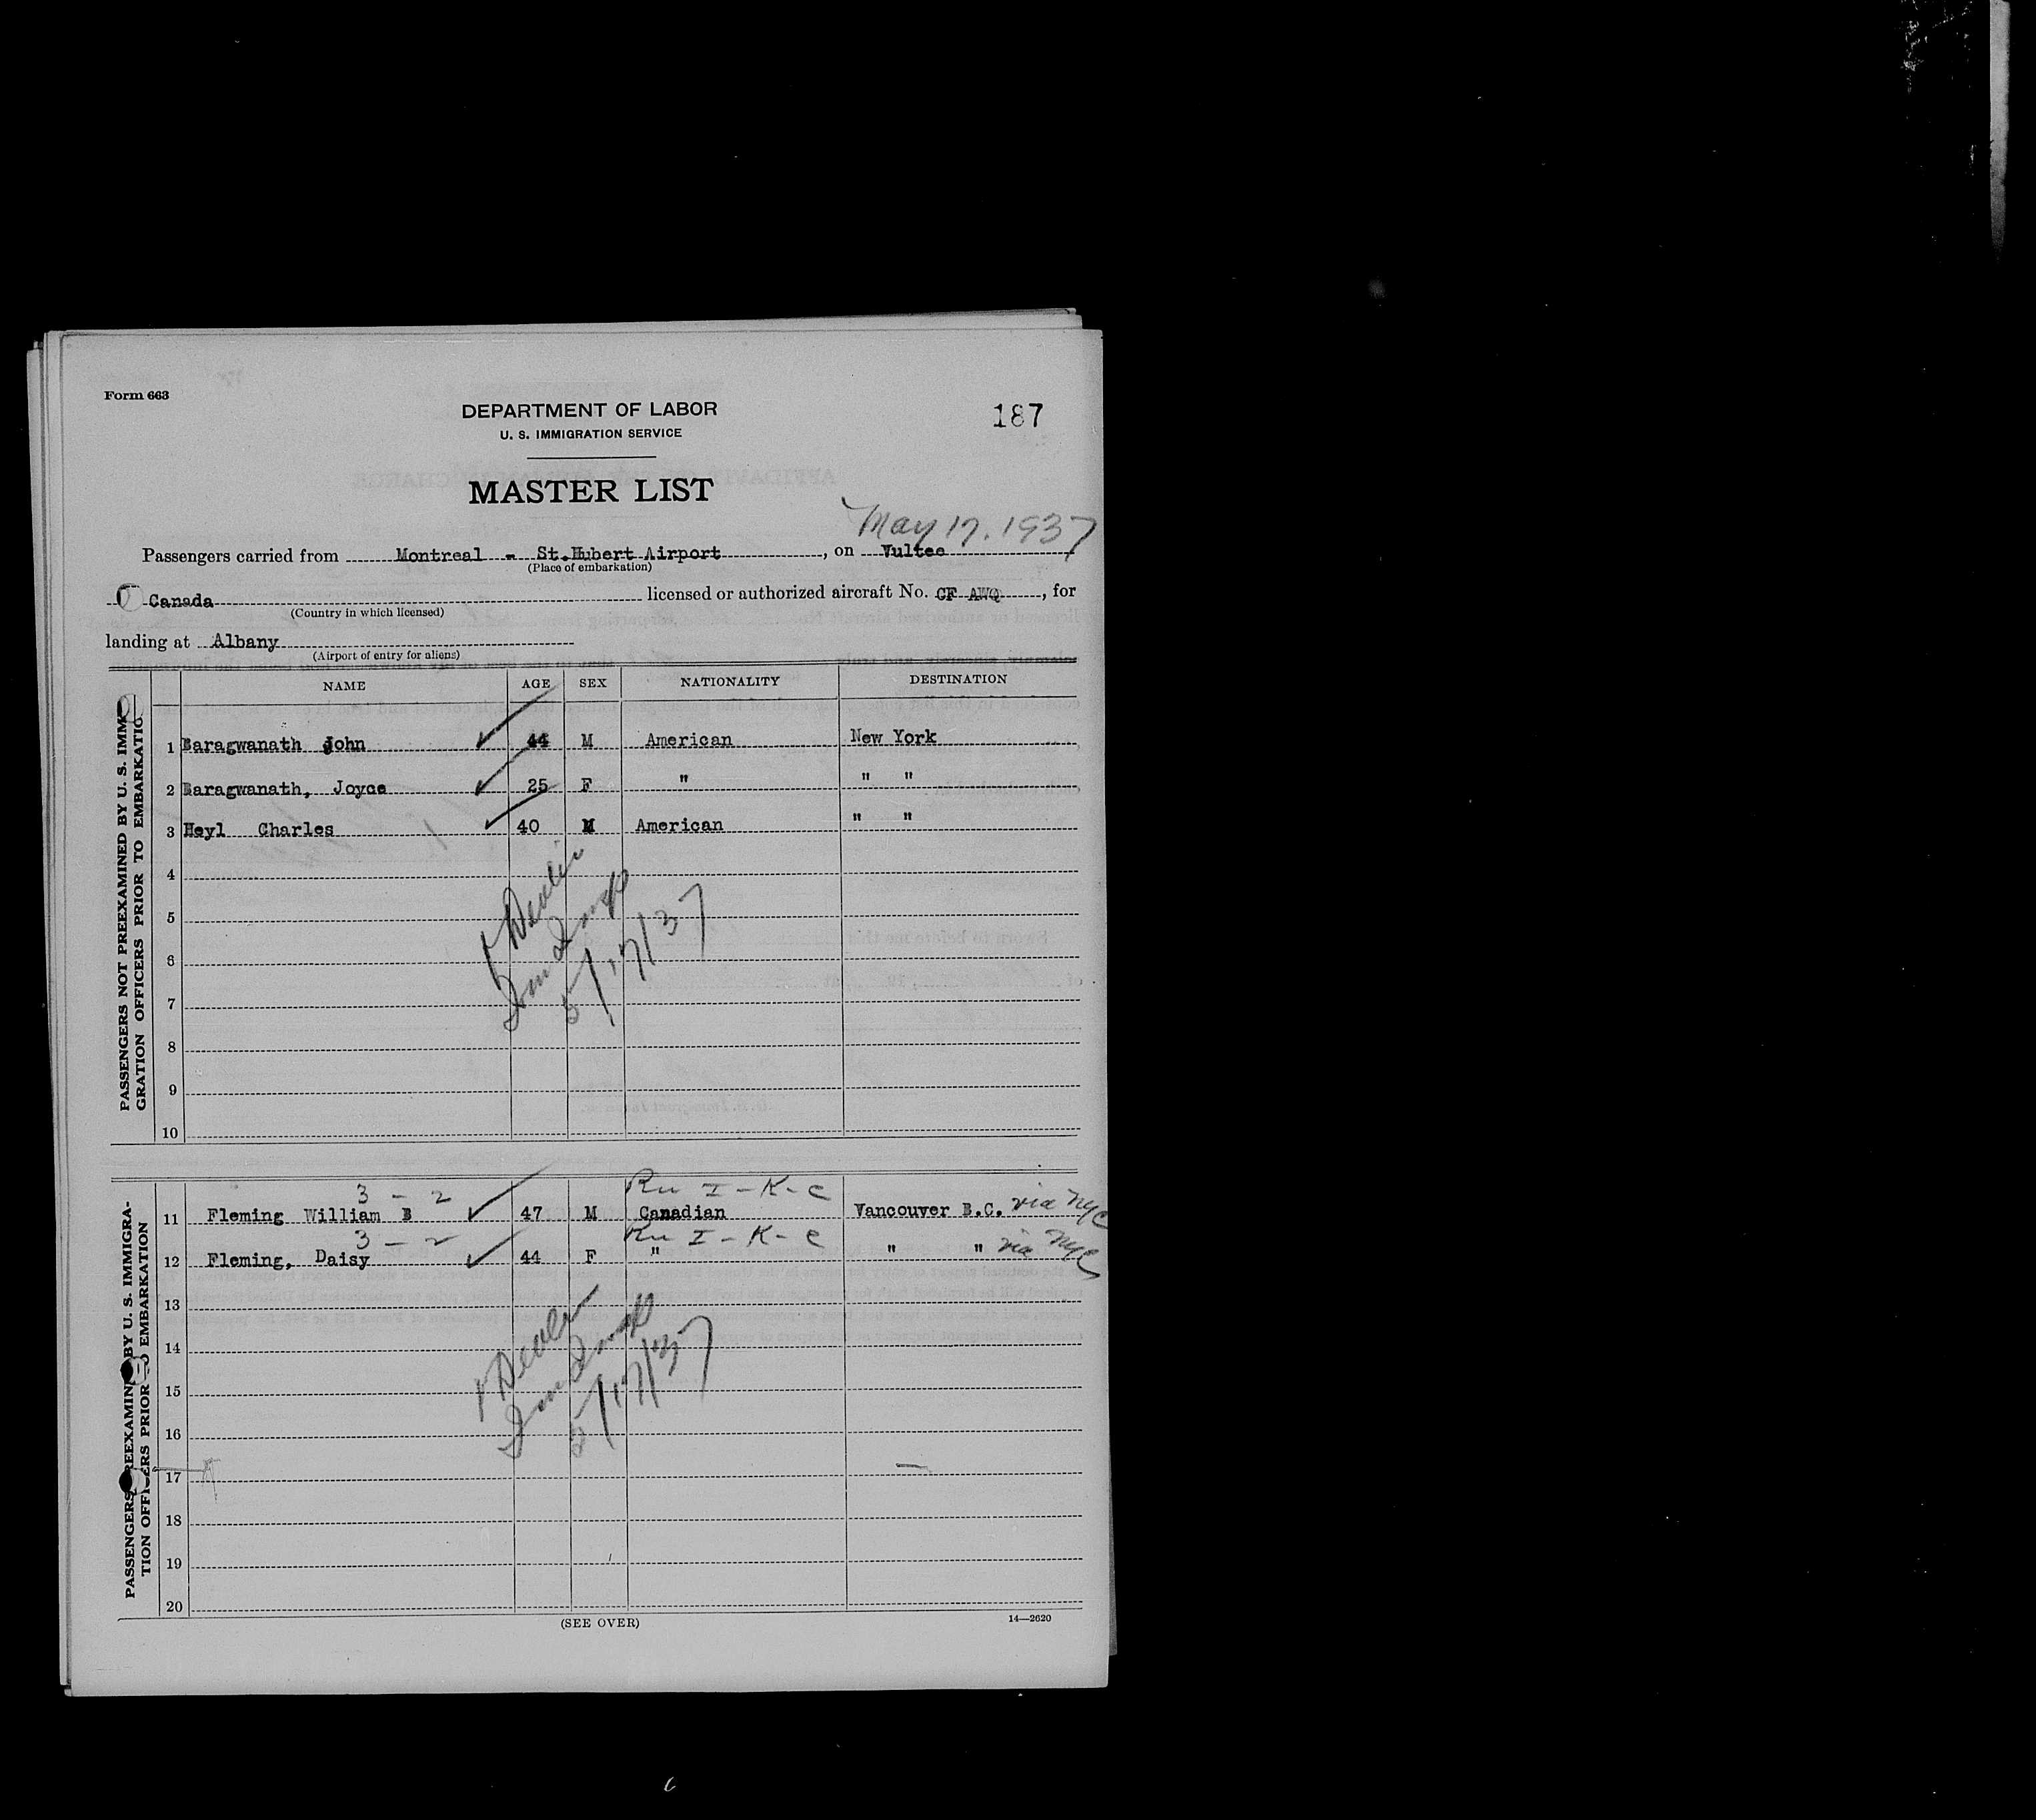 Form 663
DEPARTMENT OF LABOR
187
U. S. IMMIGRATION SERVICE
MASTER LIST
May 17, 1937
Passengers carried from Montreal - St.Hubert Airport, on Vultee
(Place of embarkation)
Canada licensed or authorized aircraft No. CF AWQ, for
(Country in which licensed)
landing at Albany
(Airport of entry for aliens)
PASSENGERS NOT PREEXAMINED BY U. S. IMMI-
GRATION OFFICERS PRIOR TO EMBARKATION
NAME AGE SEX NATIONALITY DESTINATION
1 Baragwanath John 44 M American New York
2 Baragwanath, Joyce 25 F " " "
3 Heyl Charles 40 M American " "
4
5
6
7
8
9
10
Devlin
Imm Insp
5/17/37
PASSENGERS PREEXAMINED BY U. S. IMMIGRA-
TION OFFICERS PRIOR TO EMBARKATION
3 - 2 I - K - C
11 Fleming William B 47 M Canadian Vancouver B.C. via NYC
3 - 2 I - K - C
12 Fleming, Daisy 44 F " " " via NYC
13
14
15
16
17
18
19
20
Devlin
Imm Insp
5/17/37
(SEE OVER)
14—2620